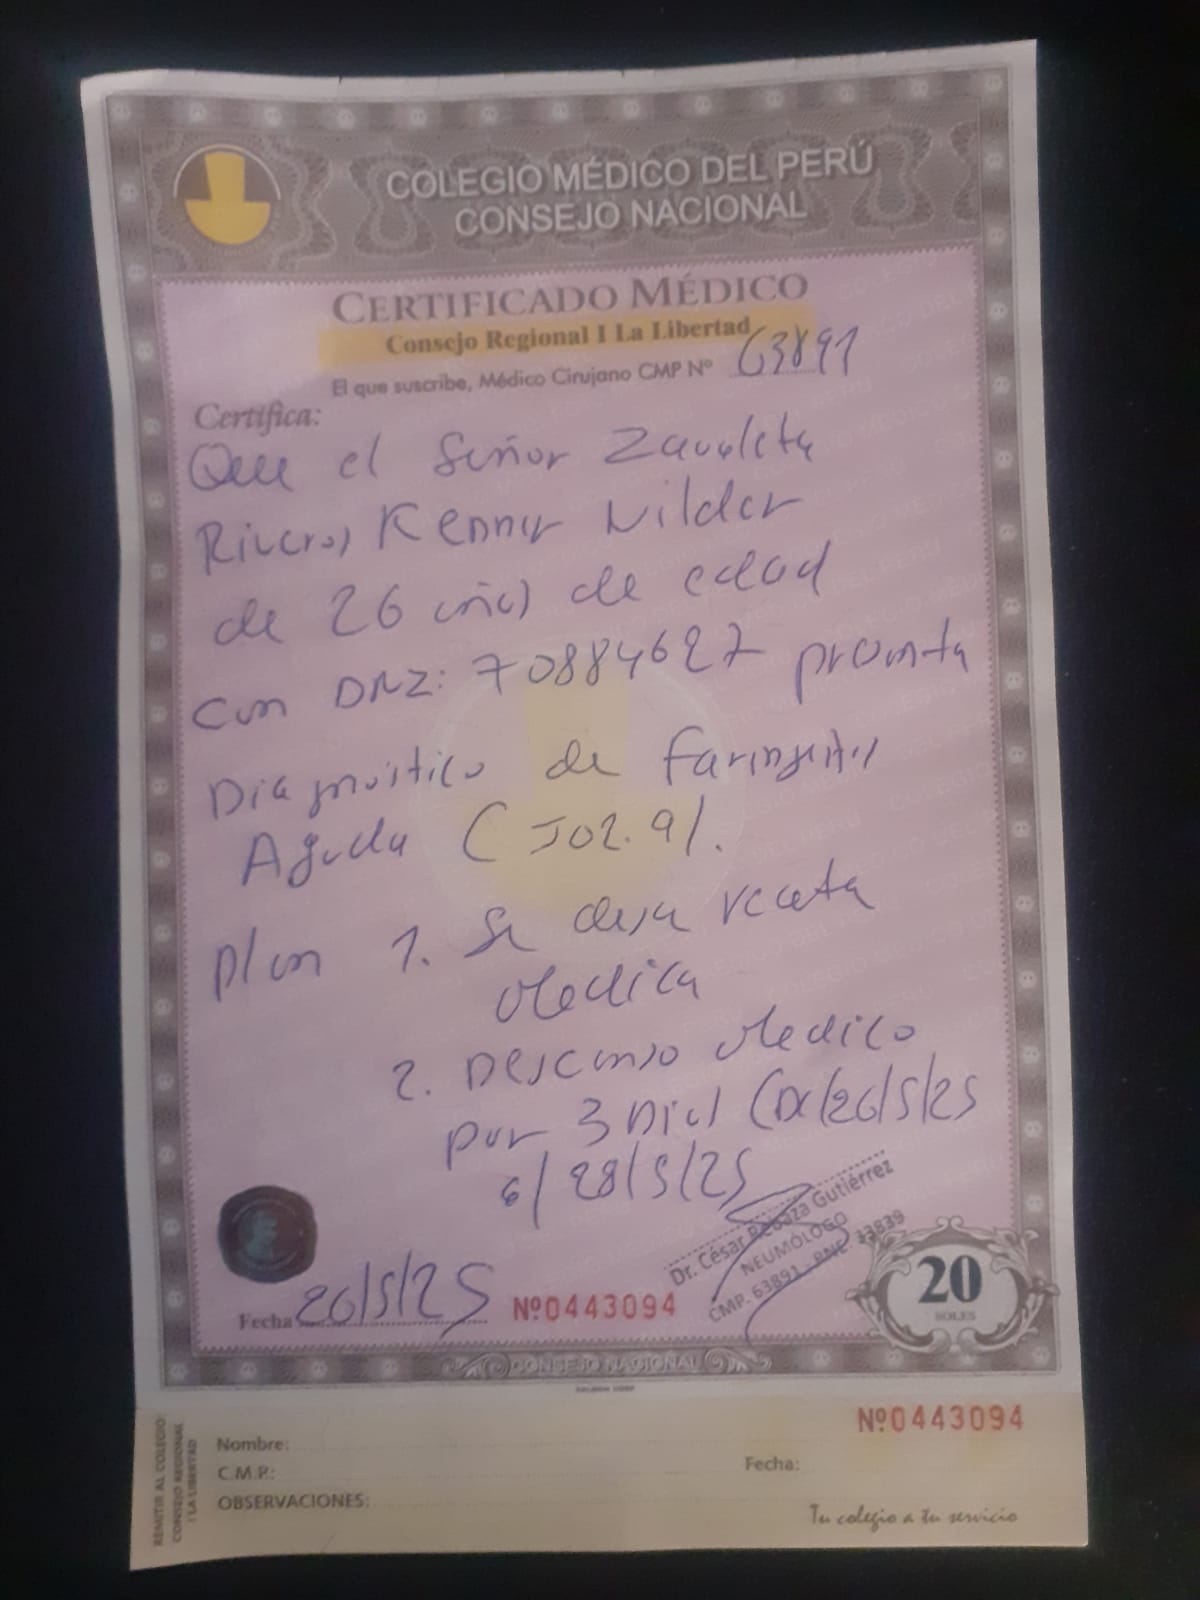 COLEGIO MÉDICO DEL PERÚ
CONSEJO NACIONAL
CERTIFICADO MÉDICO
Consejo Regional I La Libertad
El que suscribe, Médico Cirujano CMP Nº 63891
Certifica:
Que el Señor Zavaleta
Riveros Kenner Wilder
de 26 años de edad
con DNI: 70884627 presenta
Diagnóstico de Faringitis
Aguda (J02.9).
Plan 1. Se deja receta
Medica
2. Descanso Medico
por 3 Dias (De/26/5/25
a/28/5/25
Dr. César Rebaza Gutiérrez
NEUMÓLOGO
CMP. 63891 - RNE. 33839
20
SOLES
Fecha 26/5/25 Nº 0443094
CONSEJO NACIONAL
Nº 0443094
REMITIR AL COLEGIO
CONSEJO REGIONAL
I LA LIBERTAD
Nombre:
C.M.P.: Fecha:
OBSERVACIONES:
Tu colegio a tu servicio